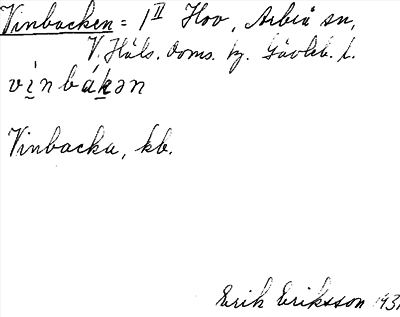 Vinbacken = 1 II Hov, Arbrå sn,
V. Häls. doms. tg. Gävleb. l.
vi̱nbák̠ən
Vinbacka, kb.
Erik Eriksson 193